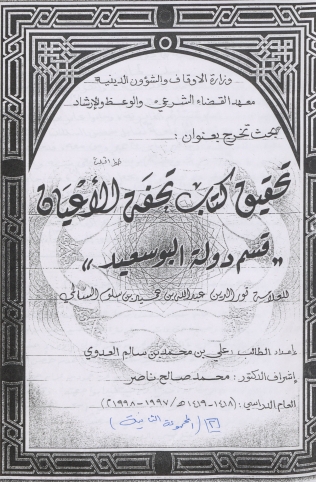 وزارة الأوقاف والشؤون الدينية
معهد القضاء الشرعي والوعظ والإرشاد
بحث تخرج بعنوان :
تحقيق كتاب تحفة الأعيان
"قسم دولة البوسعيد"
للعلامة نور الدين عبدالله بن حميد بن سلوم السالمي
إعداد الطالب : علي بن محمد بن سالم العدوي
إشراف الدكتور : محمد صالح ناصر
العام الدراسي : (١٤١٨-١٤١٩هـ/١٩٩٧-١٩٩٨م)
[٣] (المجموعة الثانية)